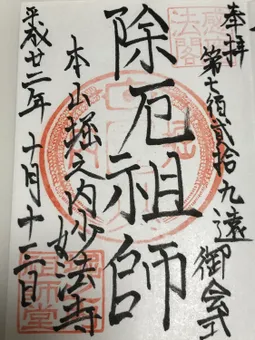 奉拝
第七百貮拾九遠御会式
除厄祖師
本山堀之内妙法寺
平成廿二年十月十三日